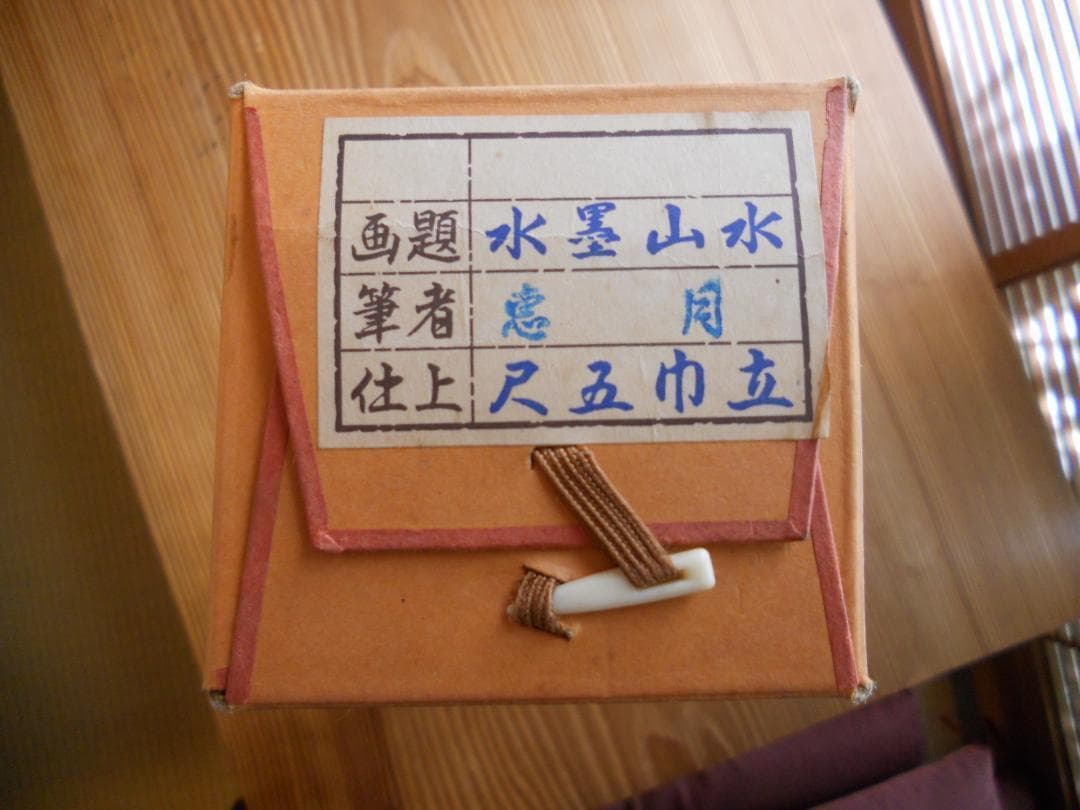 画題 水墨山水
筆者 恵月
仕上 尺五巾立